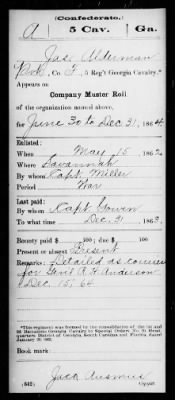 (Confederate.)
A | 5 Cav. | Ga.
Jas. Alderman
Pvt, Co. F, 5 Reg't Georgia Cavalry.*
Appears on
Company Muster Roll
of the organization named above,
for June 30 to Dec 31, 1864.
Enlisted:
When May 15, 1862
Where Savannah
By whom Capt. Miller
Period War
Last paid:
By whom Capt Gowen
To what time Dec. 31, 1863.
Bounty paid $ 100; due $ 100
Present or absent Present
Remarks: Detailed as courier
for Genl R H Anderson
Dec. 15, 64
*This regiment was formed by the consolidation of the 1st and
2d Battalions Georgia Cavalry by Special Orders No.
District of Georgia, South Carolina and Florida, dated
January 20, 1863.
Book mark:
(642)
Copyist.